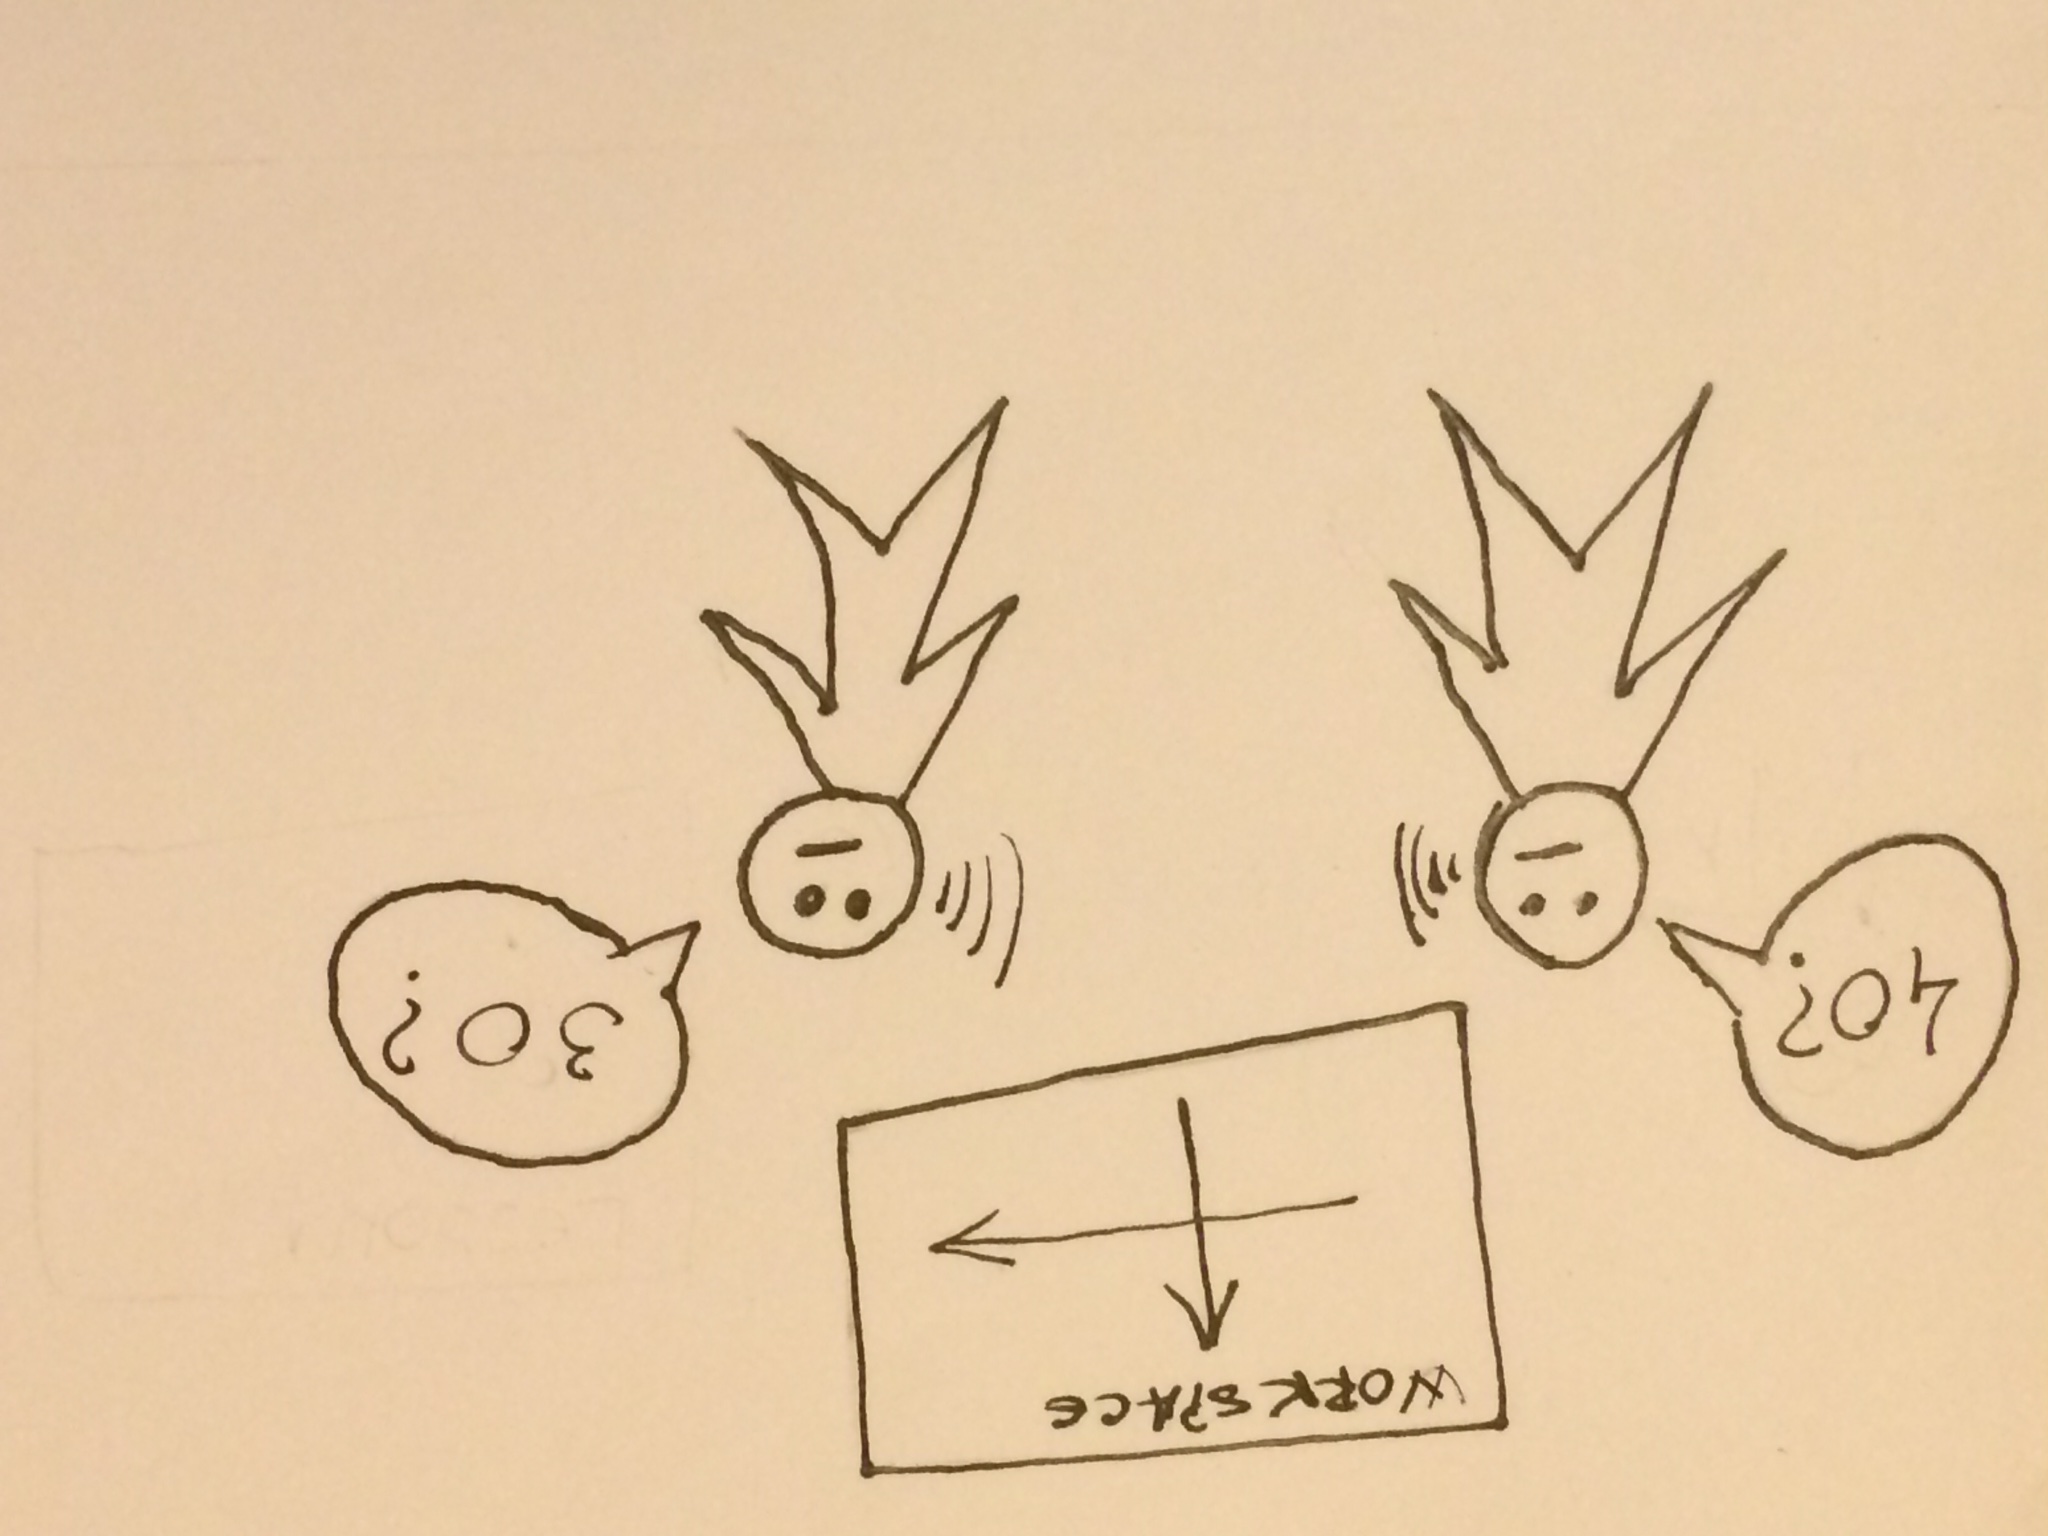 WORKSPACE
40?
30?